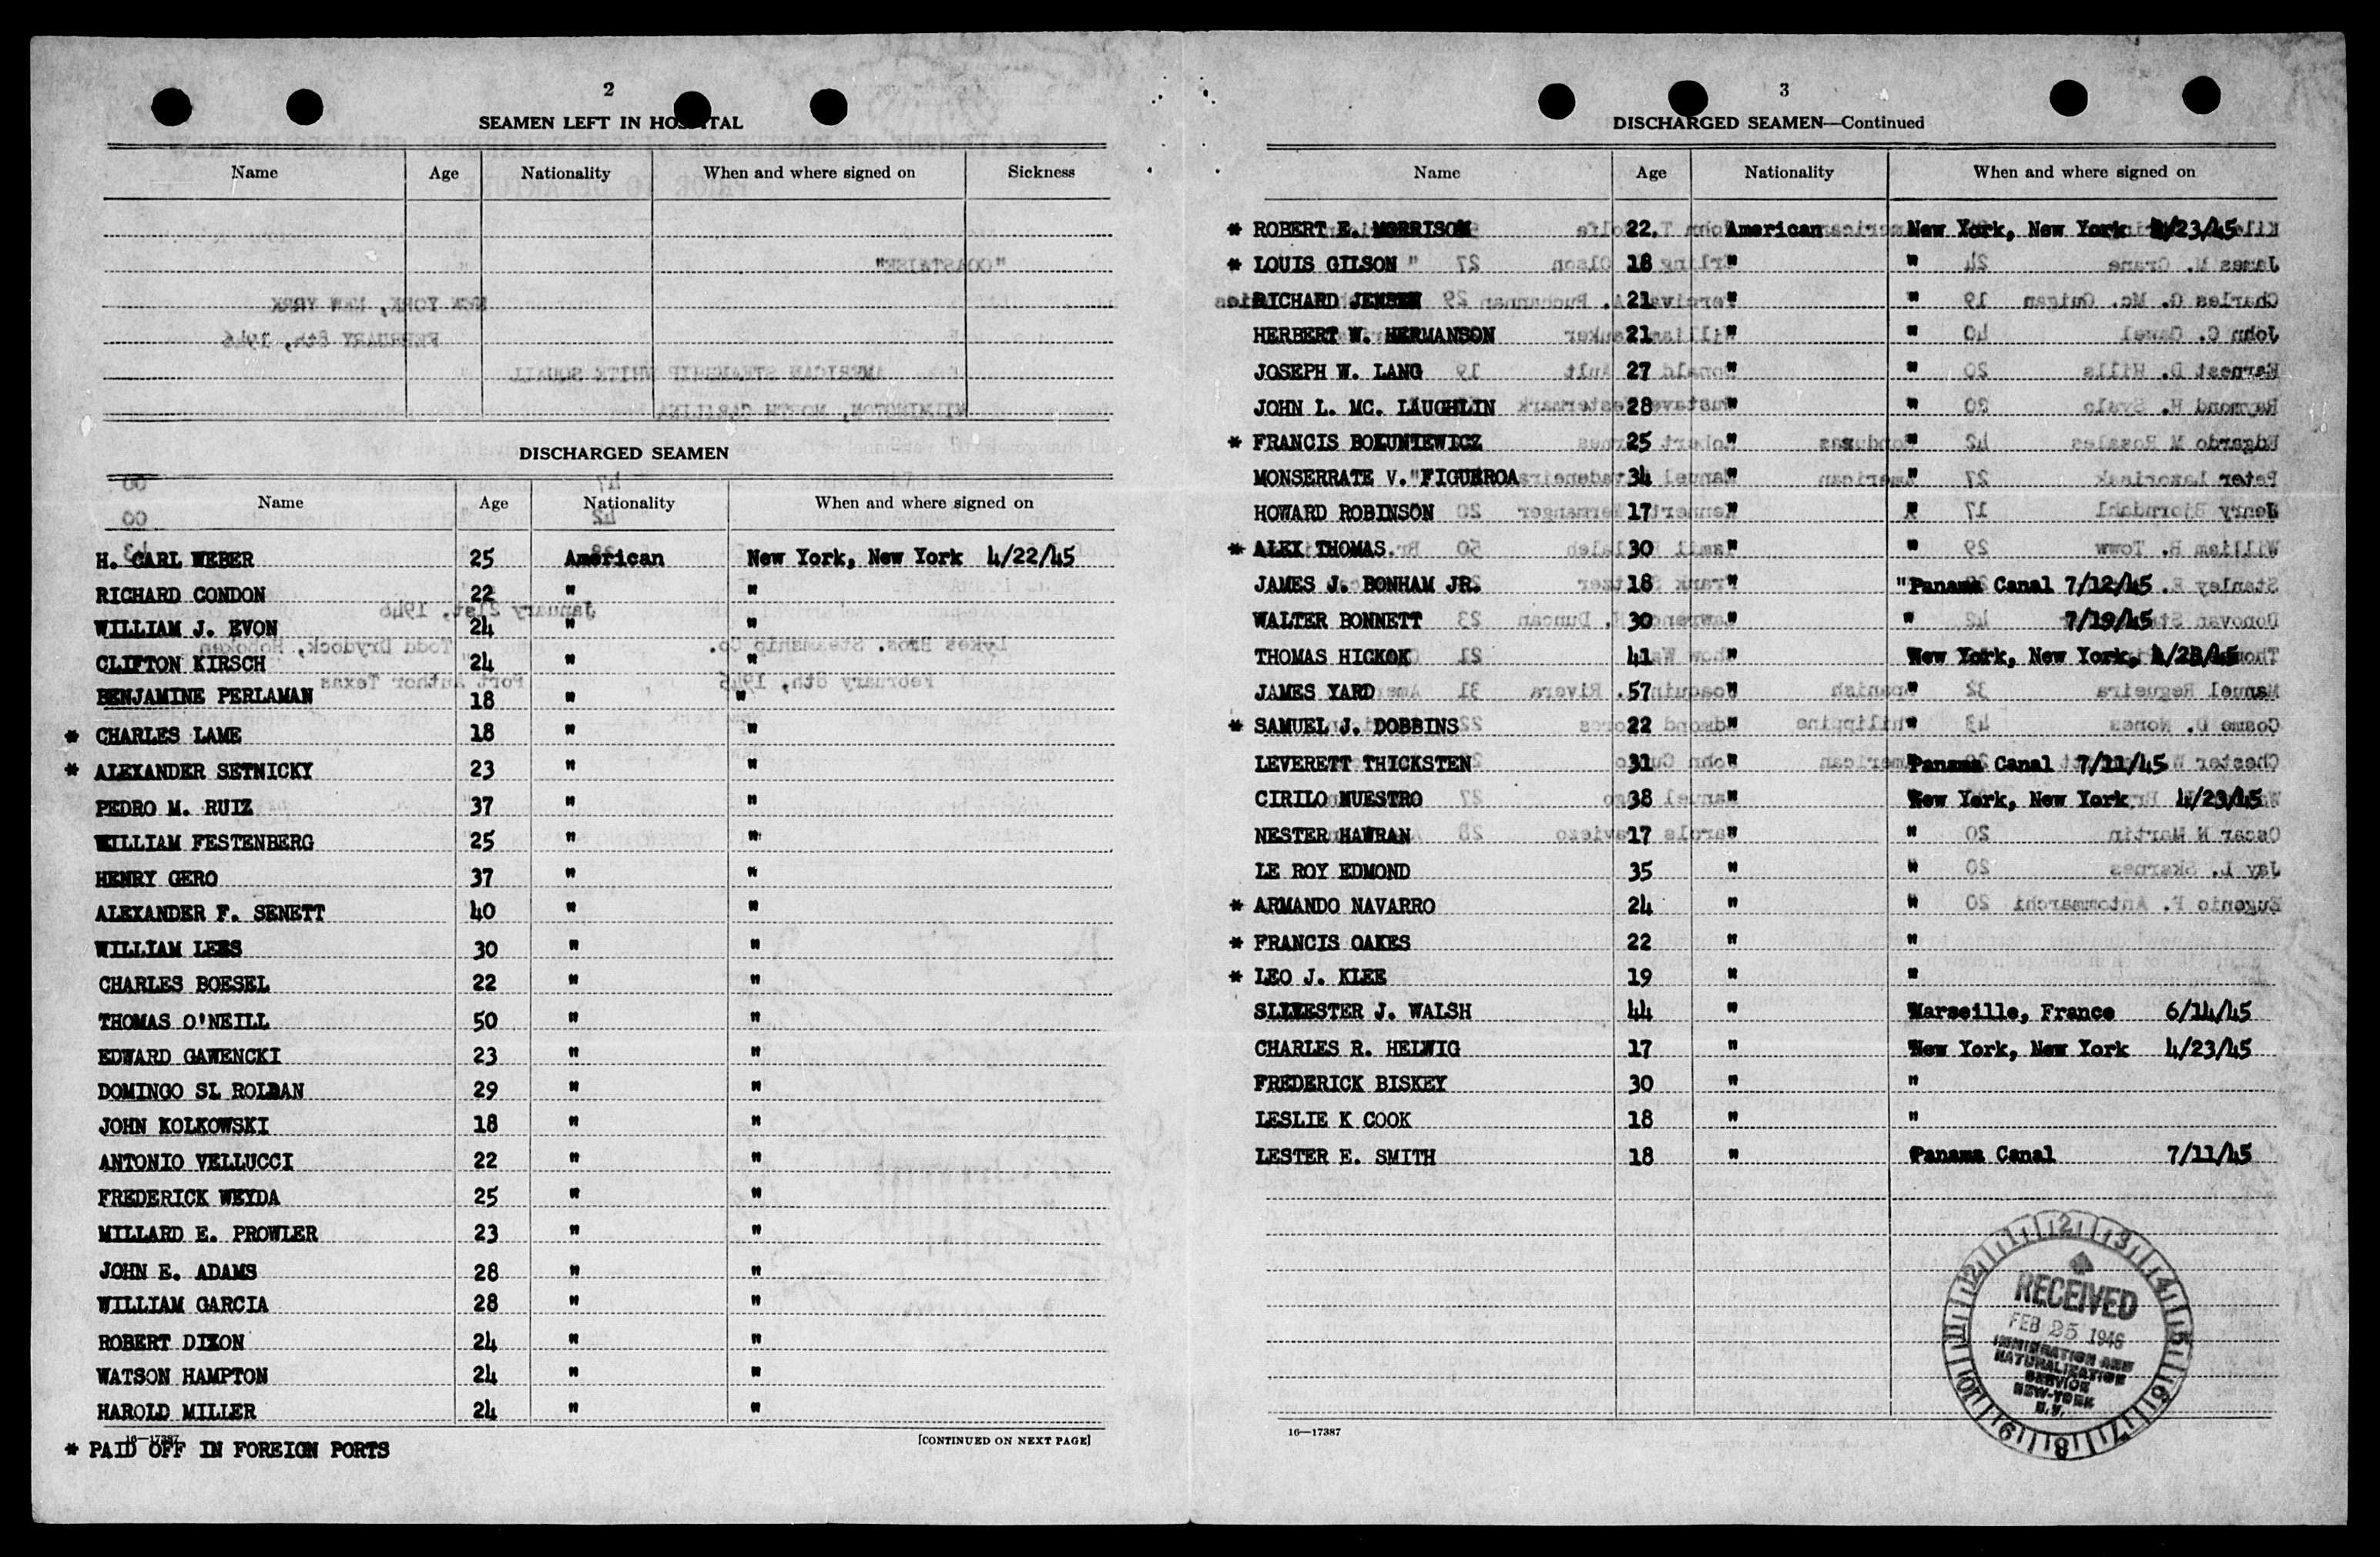 2
SEAMEN LEFT IN HOSPITAL
Name Age Nationality When and where signed on Sickness
DISCHARGED SEAMEN
Name Age Nationality When and where signed on
H. CARL WEBER 25 American New York, New York 4/22/45
RICHARD CONDON 22 " "
WILLIAM J. EVON 24 " "
CLIFTON KIRSCH 24 " "
BENJAMINE PERLAMAN 18 " "
* CHARLES LAME 18 " "
* ALEXANDER SETNICKY 23 " "
PEDRO M. RUIZ 37 " "
WILLIAM FESTENBERG 25 " "
HENRY GERO 37 " "
ALEXANDER F. SENETT 40 " "
WILLIAM LEES 30 " "
CHARLES BOESEL 22 " "
THOMAS O'NEILL 50 " "
EDWARD GAWENCKI 23 " "
DOMINGO SL ROLDAN 29 " "
JOHN KOLKOWSKI 18 " "
ANTONIO VELLUCCI 22 " "
FREDERICK WEYDA 25 " "
MILLARD E. PROWLER 23 " "
JOHN E. ADAMS 28 " "
WILLIAM GARCIA 28 " "
ROBERT DIXON 24 " "
WATSON HAMPTON 24 " "
HAROLD MILLER 24 " "
16—17387 [CONTINUED ON NEXT PAGE]
* PAID OFF IN FOREIGN PORTS
3
DISCHARGED SEAMEN—Continued
Name Age Nationality When and where signed on
* ROBERT E. MORRISON 22. American New York, New York /23/45
* LOUIS GILSON 18 " "
RICHARD JENSEN 21 " "
HERBERT W. HERMANSON 21 " "
JOSEPH W. LANG 27 " "
JOHN L. MC. LAUGHLIN 28 " "
* FRANCIS BOKUNIEWICZ 25 " "
MONSERRATE V. FIGUEROA 34 " "
HOWARD ROBINSON 17 " "
* ALEX THOMAS 30 " "
JAMES J. BONHAM JR. 18 " "Panama Canal 7/12/45
WALTER BONNETT 30 " " 7/19/45
THOMAS HICKOK 41 " New York, New York, 4/23/45
JAMES YARD 57 " "
* SAMUEL J. DOBBINS 22 " "
LEVERETT THICKSTEN 31 " Panama Canal 7/11/45
CIRILO MUESTRO 38 " New York, New York 4/23/45
NESTER HAWRAN 17 " "
LE ROY EDMOND 35 " "
* ARMANDO NAVARRO 24 " "
* FRANCIS OAKES 22 " "
* LEO J. KLEE 19 " "
J. WALSH 44 " Marseille, France 6/14/45
CHARLES R. HELWIG 17 " New York, New York 4/23/45
FREDERICK BISKEY 30 " "
LESLIE K COOK 18 " "
LESTER E. SMITH 18 " Panama Canal 7/11/45
16—17387
RECEIVED
FEB 25 1946
IMMIGRATION AND
NATURALIZATION
SERVICE
NEW-YORK
N.Y.